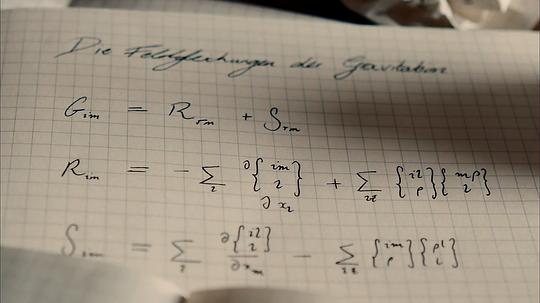 Die Feldgleichungen der Gravitation
G_{im} = R_{im} + S_{im}
R_{im} = - \sum_l \frac{\partial \{ {im \atop l} \}}{\partial x_l} + \sum_{lρ} \{ {il \atop ρ} \} \{ {mρ \atop l} \}
S_{im} = \sum_l \frac{\partial \{ {il \atop l} \}}{\partial x_m} - \sum_{lρ} \{ {im \atop ρ} \} \{ {ρl \atop l} \}